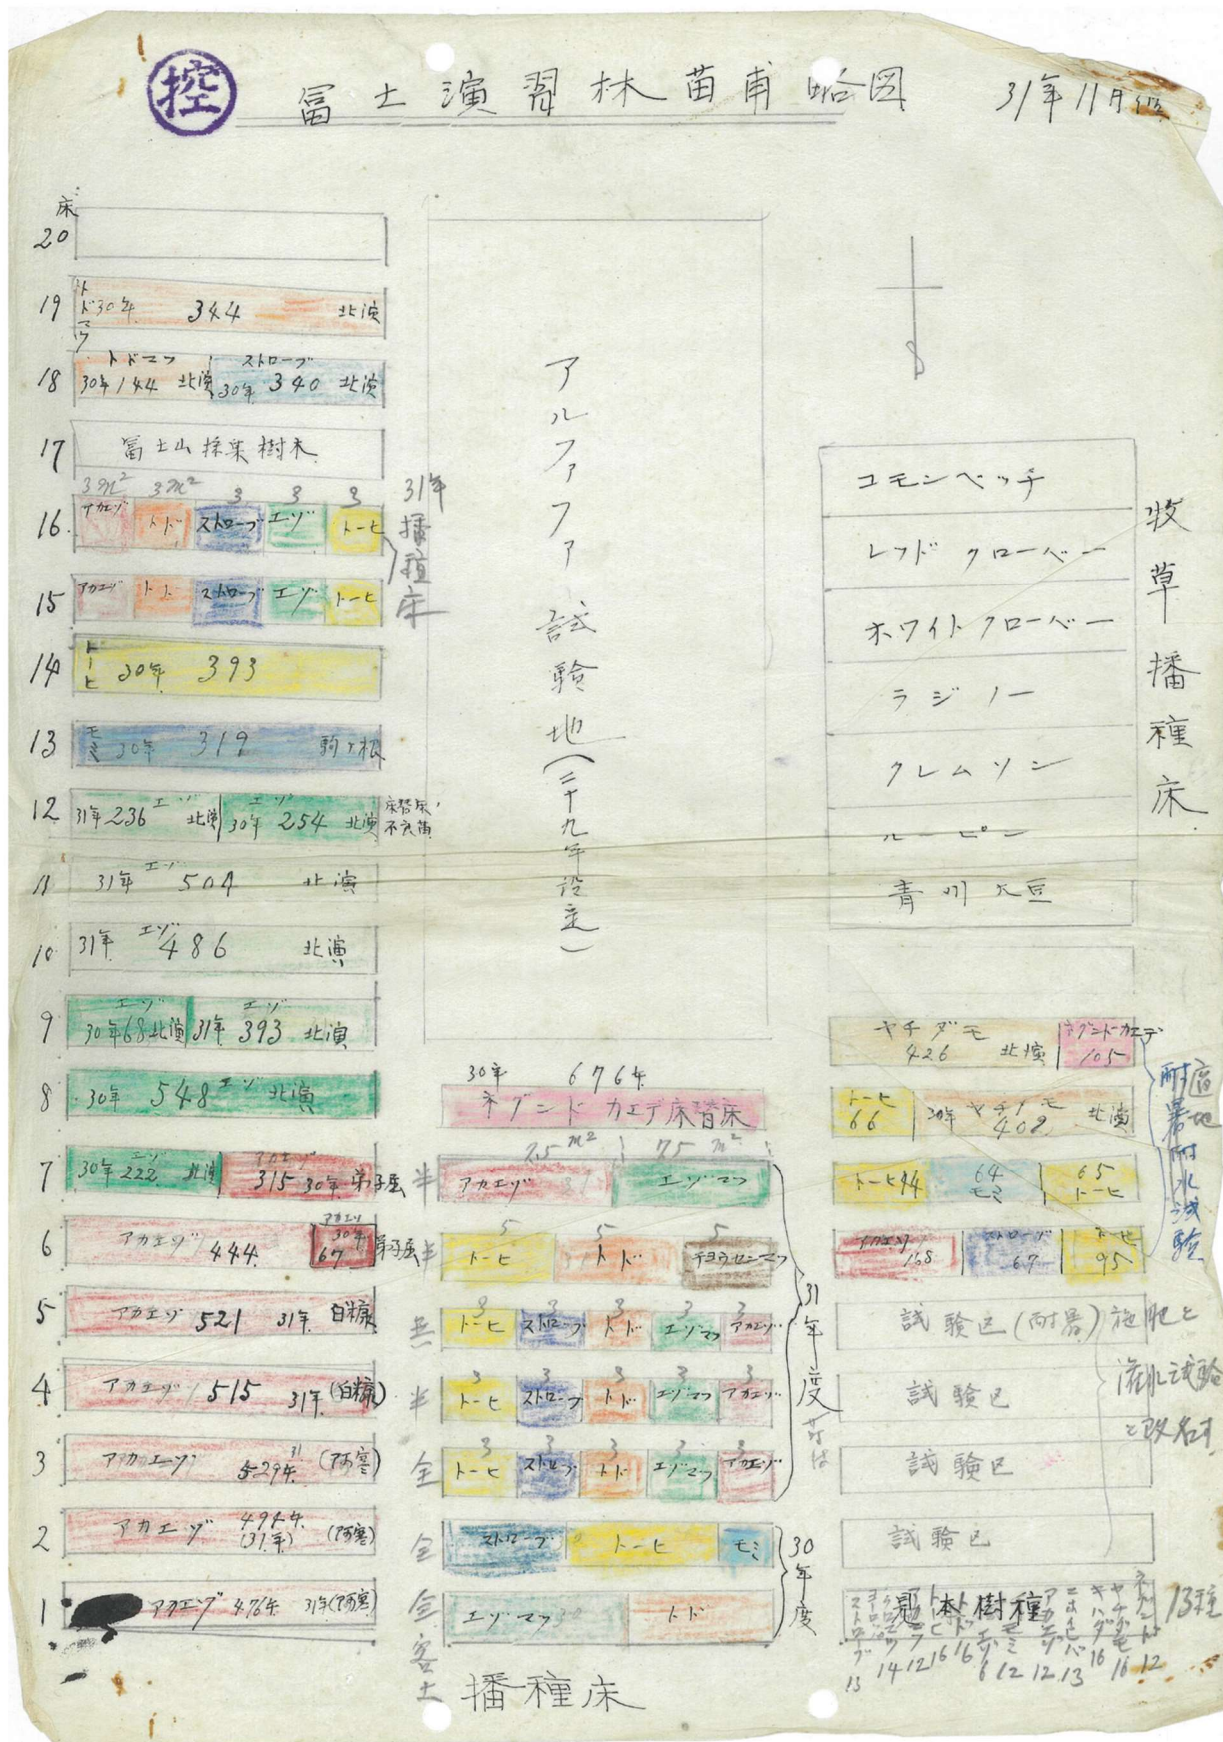 控
富士演習林苗甫略図
31年11月
床
20
19 トドマツ 30年 344 北演
18 トドマツ 30年 144 北演 ストローブ 30年 340 北演
17 富士山採集樹木
3m² 3m² 3 3 3
16. アカエゾ トド ストローブ エゾ トーヒ
15 アカエゾ トド ストローブ エゾ トーヒ
31年播種床
14 トーヒ 30年 393
13 モミ 30年 319 駒ヶ根
12 31年 236 エゾ 北演 エゾ 30年 254 北演
11 31年 エゾ 504 北演
10 31年 エゾ 486 北演
9 エゾ 30年 68 北演 エゾ 31年 393 北演
8 30年 548 エゾ 北演
7 エゾ 30年 222 北演 アカエゾ 315 30年 弟子屈
6 アカエゾ 444 アカエゾ 30年 67 弟子屈
5 アカエゾ 521 31年 白糠
4 アカエゾ 515 31年 (白糠)
3 アカエゾ 529本 31 (阿寒)
2 アカエゾ 494本 (31年) (阿寒)
1 アカエゾ 476本 31年(阿寒)
アルファファ試験地(三十九年設定)
30年 676本
ネグンドカエデ床替床
7.5m² 7.5m²
半 アカエゾ エゾマツ
5 5 5
半 トーヒ トド チョウセンマツ
3 3 3 3 3
無 トーヒ ストローブ トド エゾマツ アカエゾ
3 3 3 3 3
半 トーヒ ストローブ トド エゾマツ アカエゾ
3 3 3 3 3
全 トーヒ ストローブ トド エゾマツ アカエゾ
31年度
全 ストローブ トーヒ モミ
全 エゾマツ トド
30年度
客土
播種床
コモンベッチ
レッドクローバー
ホワイトクローバー
ラジノー
クレムソン
ルーピン
青刈大豆
牧草播種床
ヤチダモ 426 北演 ネグンドカエデ 105
トーヒ 66 30年 ヤチダモ 402 北演
トーヒ 94 64 モミ 65 トーヒ
アカエゾ 168 ストローブ 67 トーヒ 95
耐暑耐水試験
試験区(耐暑) 施肥と
試験区 灌水試験
試験区 と改名す
試験区
見本樹種
13種
13 14 12 16 16 6 12 12 13 16 16 12